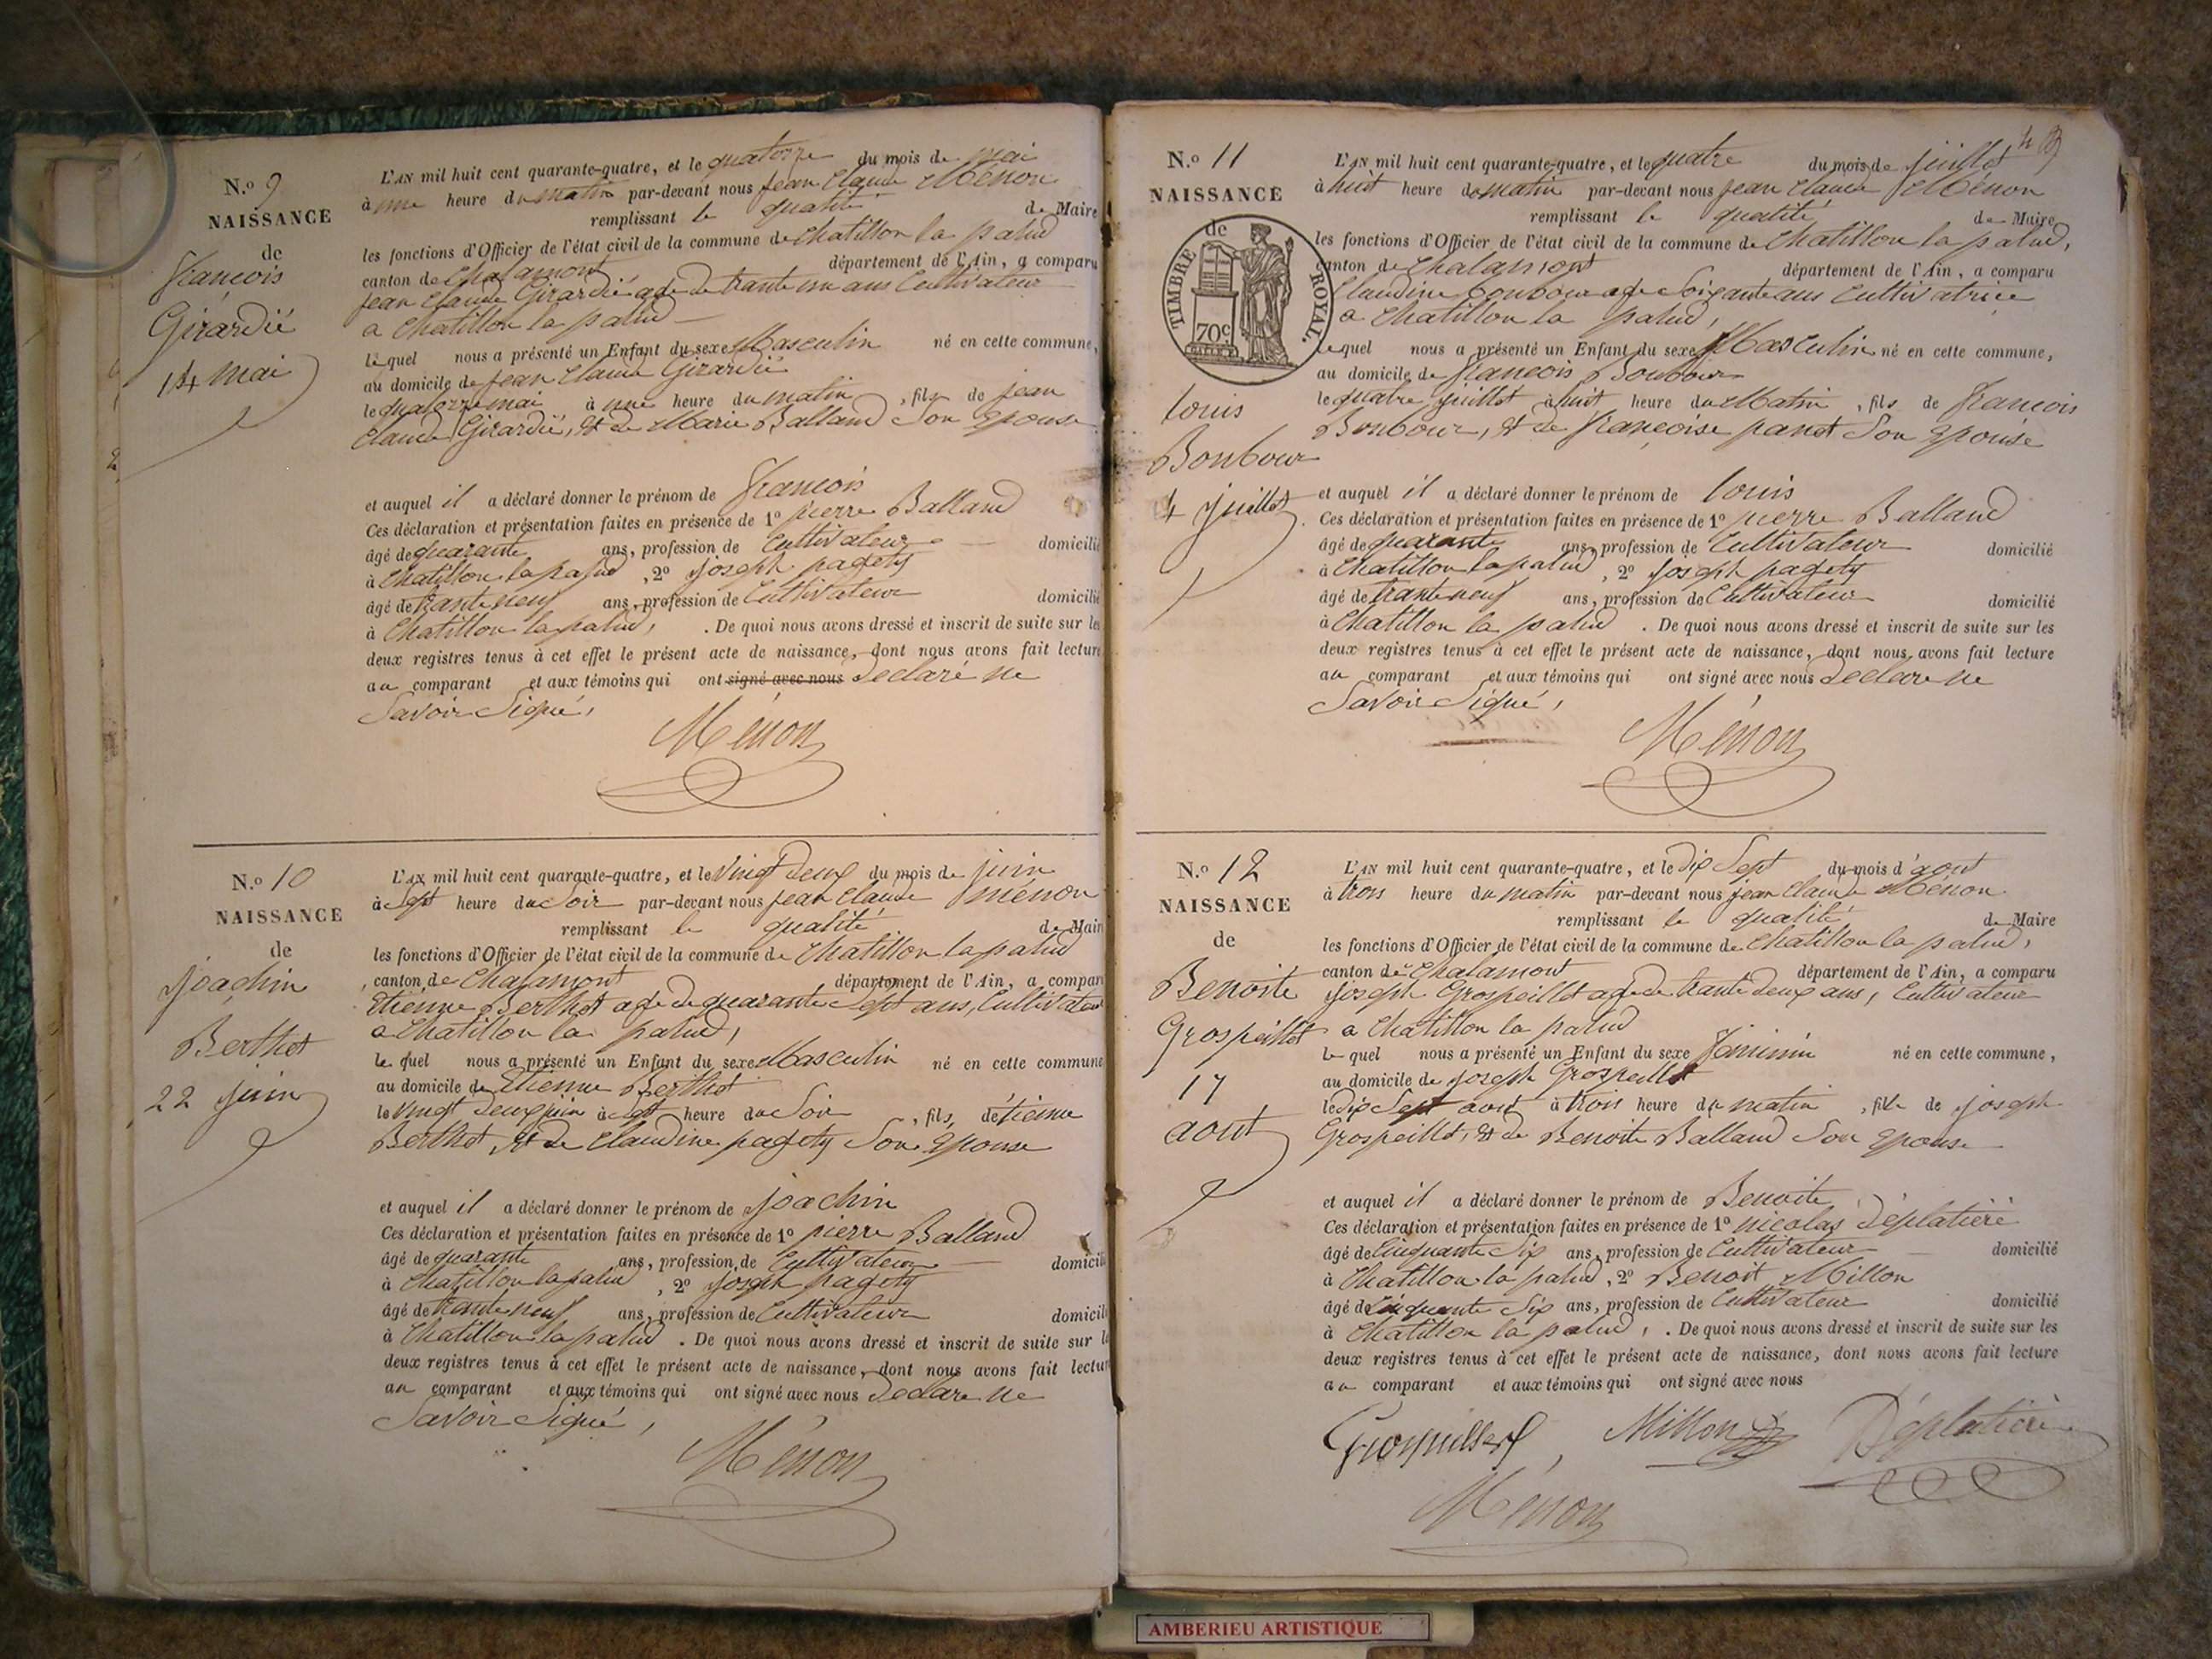 N.o 9
NAISSANCE
de
françois
Girardié
14 mai
L'AN mil huit cent quarante-quatre, et le quatorze du mois de mai
à une heure du matin par-devant nous jean Claude Ménon
remplissant la qualité de Maire
les fonctions d'Officier de l'état civil de la commune de Chatillon la palud
canton de Chalamont département de l'Ain, a comparu
jean Claude Girardié age de trante un ans Cultivateur
a Chatillon la palud
le quel nous a présenté un Enfant du sexe Masculin né en cette commune,
au domicile de jean Claude Girardié
le quatorze mai à une heure du matin, fils de jean
Claude Girardié, et de Marie Balland Son Epouse
et auquel il a déclaré donner le prénom de françois
Ces déclaration et présentation faites en présence de 1o pierre Balland
âgé de quarante ans, profession de Cultivateur domicilié
à Chatillon la palud, 2o joseph pagety
âgé de trante neuf ans, profession de Cultivateur domicilié
à Chatillon la palud, . De quoi nous avons dressé et inscrit de suite sur les
deux registres tenus à cet effet le présent acte de naissance, dont nous avons fait lecture
au comparant et aux témoins qui ont signé avec nous Declaré ne
Savoir Signé,
Ménon
N.o 10
NAISSANCE
de
joachin
Berthet
22 juin
L'AN mil huit cent quarante-quatre, et le Vingt Deux du mois de juin
à Sept heure du Soir par-devant nous jean Claude Ménon
remplissant la qualité de Mair
les fonctions d'Officier de l'état civil de la commune de Chatillon la palud
canton de Chalamont département de l'Ain, a compar
Etienne Berthet age de quarante Sept ans, Cultivateur
a Chatillon la palud,
le quel nous a présenté un Enfant du sexe Masculin né en cette commune
au domicile de Etienne Berthet
le Vingt Deux juin à Sept heure du Soir, fils de Etienne
Berthet, et de Claudine pagety Son Epouse
et auquel il a déclaré donner le prénom de joachin
Ces déclaration et présentation faites en présence de 1o pierre Balland
âgé de quarante ans, profession de Cultivateur domicili
à Chatillon la palud, 2o joseph pagety
âgé de trante neuf ans, profession de Cultivateur domicili
à Chatillon la palud . De quoi nous avons dressé et inscrit de suite sur l
deux registres tenus à cet effet le présent acte de naissance, dont nous avons fait lectur
au comparant et aux témoins qui ont signé avec nous Declare ne
Savoir Signé,
Ménon
N.o 11
NAISSANCE
de
TIMBRE ROYAL.
70c
louis
Bonbour
4 juillet
L'AN mil huit cent quarante-quatre, et le quatre du mois de juillet
à huit heure du matin par-devant nous jean Claude Ménon
remplissant la qualité de Maire
les fonctions d'Officier de l'état civil de la commune de Chatillon la palud,
canton de Chalamont département de l'Ain, a comparu
Claudine Bonbour age Soixante ans Cultivatrice
a Chatillon la palud,
le quel nous a présenté un Enfant du sexe Masculin né en cette commune,
au domicile de françois Bonbour
le quatre juillet à huit heure du Matin, fils de françois
Bonbour, et de françoise panet Son Epouse
et auquel il a déclaré donner le prénom de louis
Ces déclaration et présentation faites en présence de 1o pierre Balland
âgé de quarante ans, profession de Cultivateur domicilié
à Chatillon la palud, 2o joseph pagety
âgé de trante neuf ans, profession de Cultivateur domicilié
à Chatillon la palud . De quoi nous avons dressé et inscrit de suite sur les
deux registres tenus à cet effet le présent acte de naissance, dont nous avons fait lecture
au comparant et aux témoins qui ont signé avec nous Declare ne
Savoir Signé,
Ménon
N.o 12
NAISSANCE
de
Benoite
Grospeillet
17
aout
L'AN mil huit cent quarante-quatre, et le dix Sept du mois d'aout
à trois heure du matin par-devant nous jean Claude Ménon
remplissant la qualité de Maire
les fonctions d'Officier de l'état civil de la commune de Chatillon la palud,
canton de Chalamont département de l'Ain, a comparu
joseph Grospeillet age de trante deux ans, Cultivateur
a Chatillon la palud
le quel nous a présenté un Enfant du sexe féminin né en cette commune,
au domicile de joseph Grospeillet
le dix Sept aout à trois heure du matin, fille de joseph
Grospeillet, et de Benoite Balland Son Epouse
et auquel il a déclaré donner le prénom de Benoite
Ces déclaration et présentation faites en présence de 1o nicolas Déplatière
âgé de Cinquante Six ans, profession de Cultivateur domicilié
à Chatillon la palud, 2o Benoit Millon
âgé de Cinquante Six ans, profession de Cultivateur domicilié
à Chatillon la palud, . De quoi nous avons dressé et inscrit de suite sur les
deux registres tenus à cet effet le présent acte de naissance, dont nous avons fait lecture
au comparant et aux témoins qui ont signé avec nous
Millon Déplatière
Ménon
AMBERIEU ARTISTIQUE